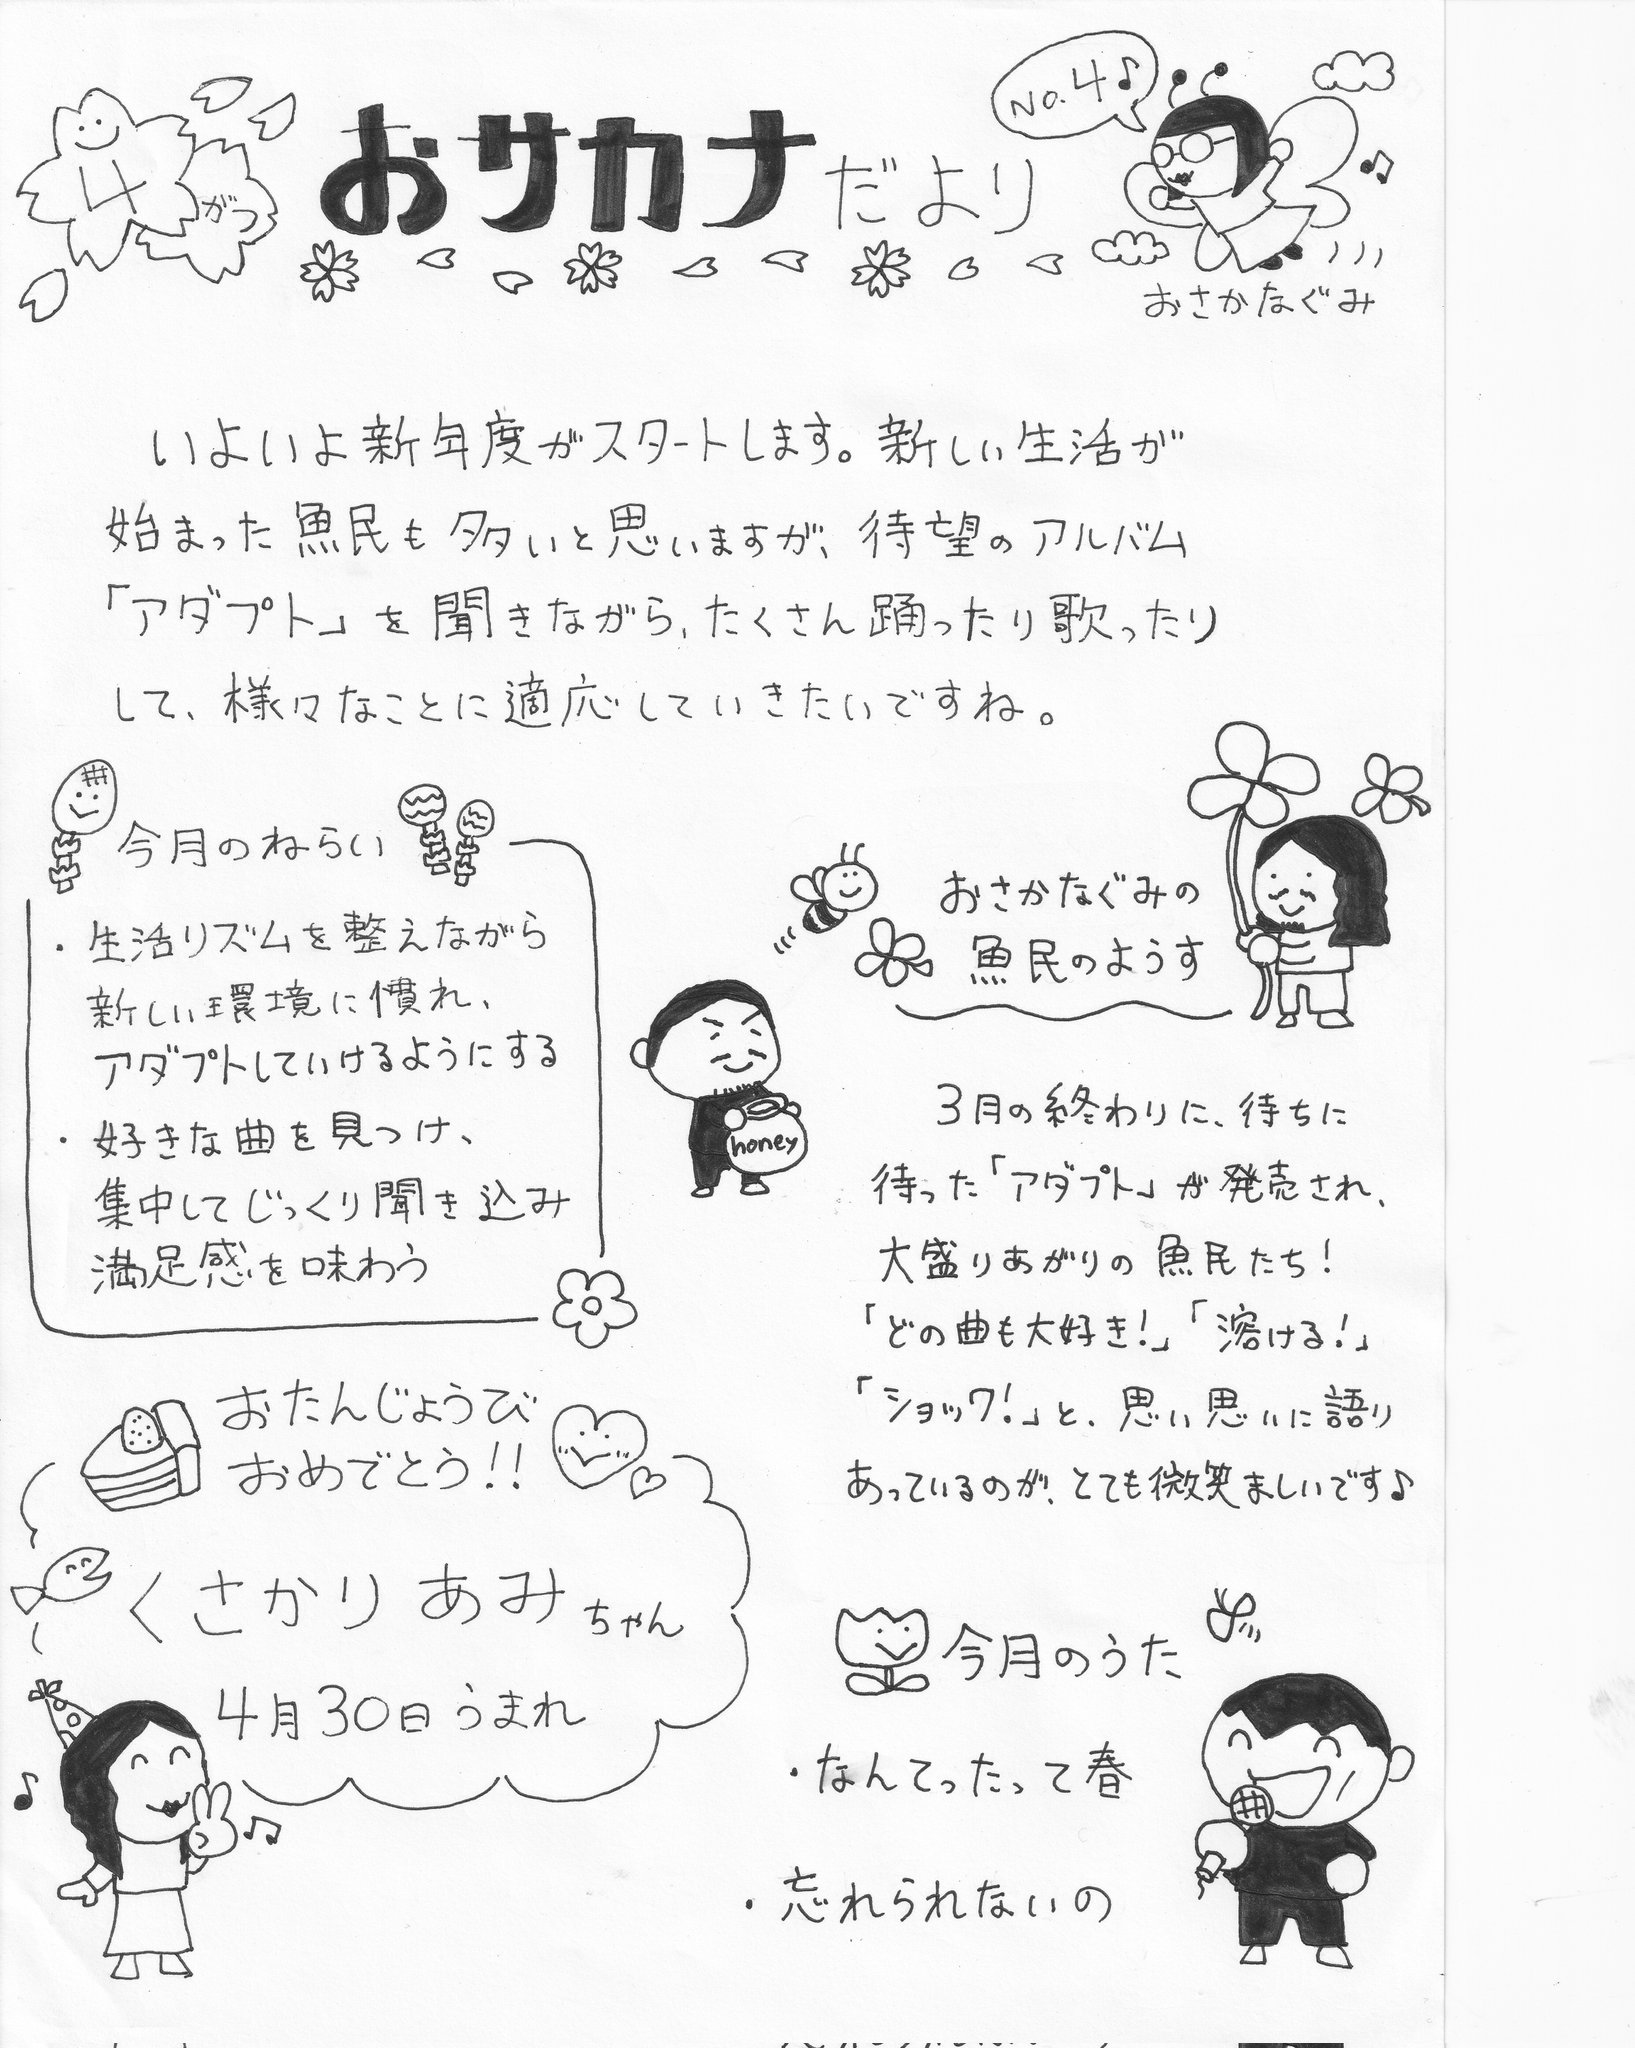 4がつ
おサカナだより
No.4♪
おさかなぐみ
いよいよ新年度がスタートします。新しい生活が
始まった魚民も多いと思いますが、待望のアルバム
「アダプト」を聞きながら、たくさん踊ったり歌ったり
して、様々なことに適応していきたいですね。
今月のねらい
・生活リズムを整えながら
新しい環境に慣れ、
アダプトしていけるようにする
・好きな曲を見つけ、
集中してじっくり聞き込み
満足感を味わう
honey
おさかなぐみの
魚民のようす
3月の終わりに、待ちに
待った「アダプト」が発売され、
大盛りあがりの魚民たち!
「どの曲も大好き!」「溶ける!」
「ショック!」と、思い思いに語り
あっているのが、とても微笑ましいです♪
おたんじょうび
おめでとう!!
くさかり あみちゃん
4月30日うまれ
今月のうた
・なんてったって春
・忘れられないの